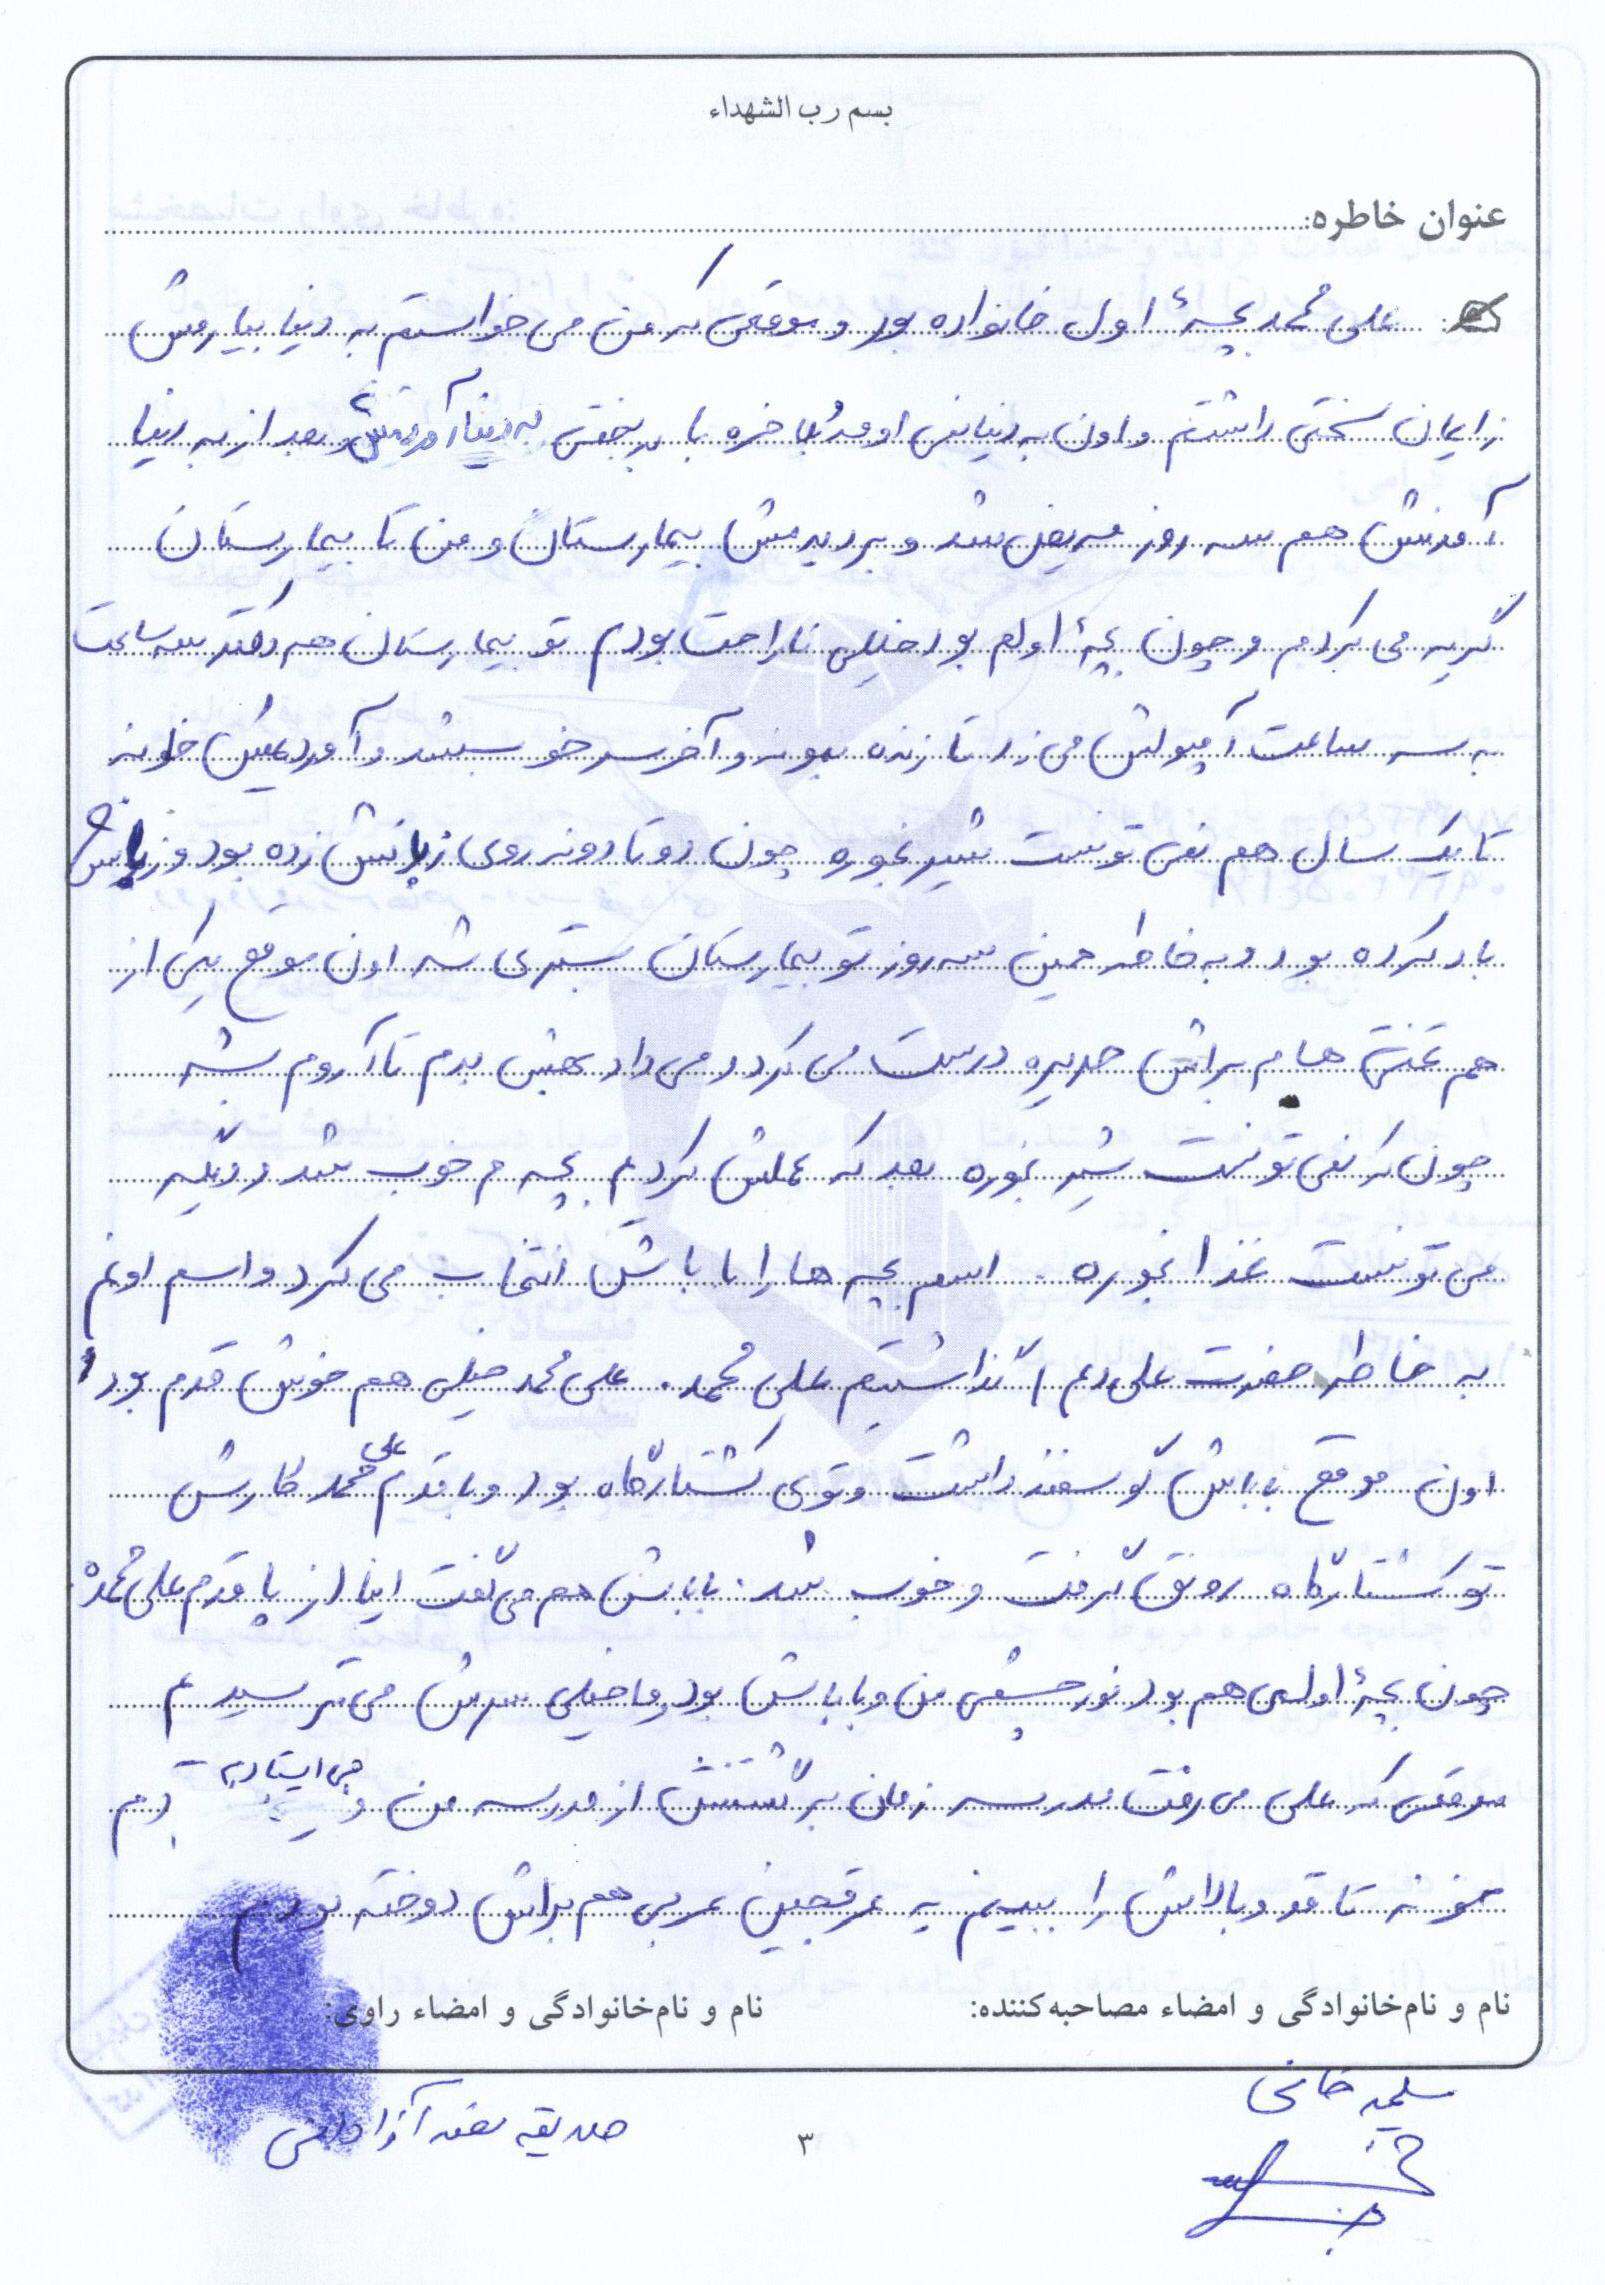 بسم رب الشهداء
عنوان خاطره:
علی محمد بچهٔ اول خانواده بود و موقعی که من می خواستم به دنیا بیارمش
زایمان سختی داشتم و اون به دنیا نمی اومد بلاخره با بدبختی به دنیا آوردمش و بعد از به دنیا
آمدنش هم سه روز مریض شد و بردیدمش بیمارستان و من تا بیمارستان
گریه می کردم و چون بچهٔ اولم بود خیلی ناراحت بودم تو بیمارستان هم دکتر سه ساعت
به سه ساعت آمپولش می زد تا زنده بمونه و آخر سر خوب شد و آوردیمش خونه
تا یک سال هم نمی تونست شیر بخوره چون دو تا دونه روی زبانش زده بود و زبانش
باد کرده بود و به خاطر همین سه روز تو بیمارستان بستری شد اون موقع یکی از
هم تختی هام براش حریره درست می کرد و می داد بهش بدم تا آروم بشه
چون که نمی تونست شیر بخوره بعد که عملش کردیم بچه م خوب شد و دیگه
می تونست غذا بخوره . اسم بچه ها را باباش انتخاب می کرد و اسم اونم
به خاطر حضرت علی (ع) گذاشتیم علی محمد. علی محمد خیلی هم خوش قدم بود
اون موقع باباش گوسفند داشت و توی کشتارگاه بود و با قدم علی محمد کارش
تو کشتارگاه رونق گرفت و خوب شد. باباش هم می گفت اینا از پا قدم علی محمده
چون بچهٔ اولمی هم بود نور چشمی من و باباش بود و ما خیلی سرش می ترسیدیم
موقعی که علی می رفت مدرسه زمان برگشتنش از مدرسه من می ایستادم دم
خونه تا قد و بالاش را ببینم یه عرقچین عربی هم براش دوخته بودم
نام و نام‌خانوادگی و امضاء مصاحبه‌کننده: نام و نام‌خانوادگی و امضاء راوی:
سلمیه خانی
صدیقه آزاد
۳